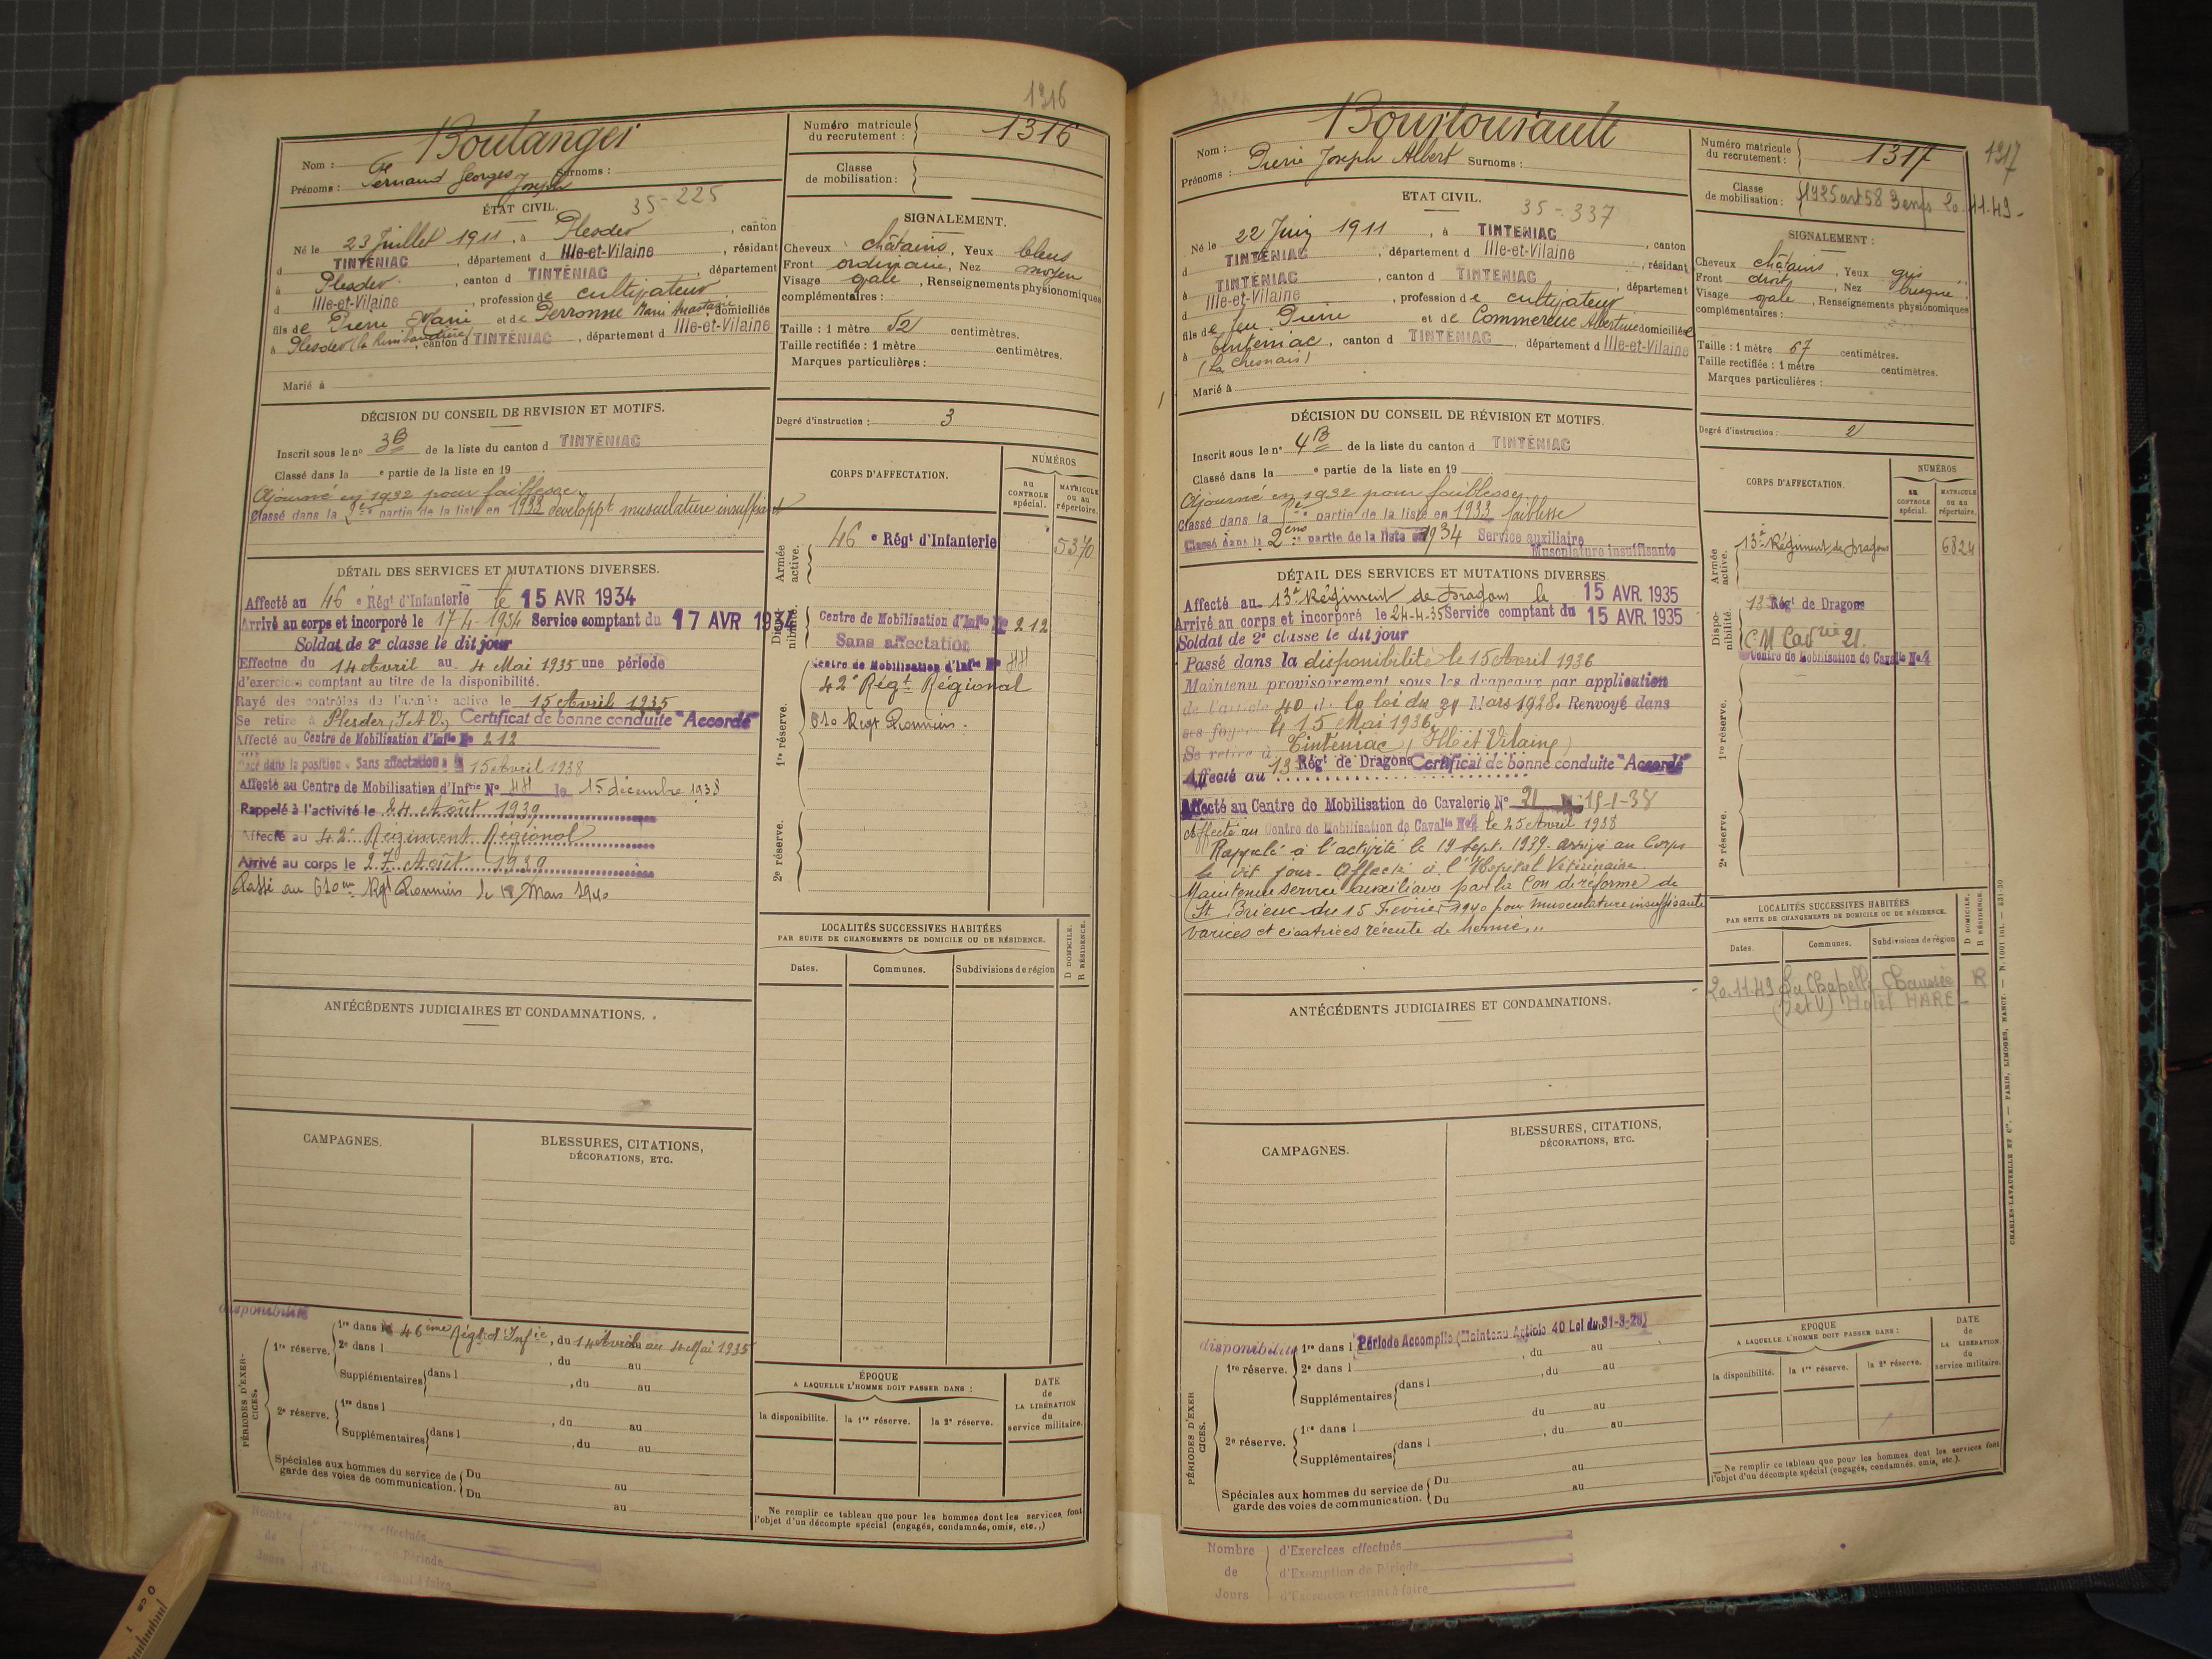 1316
Nom : Boulanger
Prénoms : Fernand Georges Joseph Surnoms :
Numéro matricule du recrutement : 1316
Classe de mobilisation :
ÉTAT CIVIL. 35-225
Né le 23 Juillet 1911, à Plesder, canton
d TINTÉNIAC, département d Ille-et-Vilaine, résidant
à Plesder, canton d TINTÉNIAC, département
d Ille-et-Vilaine, profession de cultivateur
fils de Pierre Marie et de Perronne Marie domiciliés
à Plesder, canton d TINTÉNIAC, département d Ille-et-Vilaine
Marié à
SIGNALEMENT.
Cheveux châtains, Yeux bleus
Front ordinaire, Nez moyen
Visage ovale, Renseignements physionomiques
complémentaires :
Taille : 1 mètre 52 centimètres.
Taille rectifiée : 1 mètre centimètres.
Marques particulières :
Degré d'instruction : 3
DÉCISION DU CONSEIL DE REVISION ET MOTIFS.
Inscrit sous le no 3B de la liste du canton d TINTÉNIAC
Classé dans la e partie de la liste en 19
Ajourné en 1932 pour faiblesse.
Classé dans la partie de la liste en 1933 developpt musculature insuffisant
DÉTAIL DES SERVICES ET MUTATIONS DIVERSES.
Affecté au 46 e Régt d'Infanterie le 15 AVR 1934
Arrivé au corps et incorporé le 17-4-1934 Service comptant du 17 AVR 1934
Soldat de 2e classe le dit jour
Effectue du 14 Avril au 4 Mai 1935 une période
d'exercices comptant au titre de la disponibilité.
Rayé des contrôles de l'armée active le 15 Avril 1935
Se retire à Plesder (I.&V.) Certificat de bonne conduite "Accordé"
Affecté au Centre de Mobilisation d'Infie No 212
Placé dans la position « Sans affectation » le 15 Avril 1938
Affecté au Centre de Mobilisation d'Infrie No 44 le 15 décembre 1938
Rappelé à l'activité le 24 Août 1939
Affecté au 42e Régiment Régional
Arrivé au corps le 27 Août 1939
Passé au 610me Rgt Pionniers le Mars 1940
CORPS D'AFFECTATION.
NUMÉROS
au CONTROLE spécial.
MATRICULE ou au répertoire.
Armée active.
46 e Régt d'Infanterie 5370
Disponibilité.
Centre de Mobilisation d'Infie No 212
Sans affectation
Centre de Mobilisation d'Infie No 44
1re réserve.
42e Régt Régional
610 Regt Pionniers.
2e réserve.
LOCALITÉS SUCCESSIVES HABITÉES
PAR SUITE DE CHANGEMENTS DE DOMICILE OU DE RÉSIDENCE.
D DOMICILE. R RÉSIDENCE.
Dates. Communes. Subdivisions de région
ANTÉCÉDENTS JUDICIAIRES ET CONDAMNATIONS.
CAMPAGNES.
BLESSURES, CITATIONS,
DÉCORATIONS, ETC.
disponibilité
PÉRIODES D'EXERCICES.
1re réserve.
1re dans le 46ème Régt d'Infie, du 14 Avril au 4 Mai 1935
2e dans l , du au
Supplémentaires dans l , du au
2e réserve.
1re dans l , du au
Supplémentaires dans l , du au
Spéciales aux hommes du service de garde des voies de communication.
Du au
Du au
ÉPOQUE
A LAQUELLE L'HOMME DOIT PASSER DANS :
la disponibilité. la 1re réserve. la 2e réserve.
DATE de LA LIBÉRATION du service militaire.
Ne remplir ce tableau que pour les hommes dont les services font
l'objet d'un décompte spécial (engagés, condamnés, omis, etc.,)
Nombre de Jours
effectués
de Période
restant à faire
1317
Nom :
Prénoms : Pierre Joseph Albert Surnoms :
Numéro matricule du recrutement : 1317
Classe de mobilisation : 1925 art 58 3 enfs 20.11.49-
ETAT CIVIL. 35-337
Né le 22 Juin 1911, à TINTENIAC, canton
d TINTENIAC, département d Ille-et-Vilaine, résidant
à TINTENIAC, canton d TINTENIAC, département
d Ille-et-Vilaine, profession de cultivateur
fils de feu Pierre et de Commereuc Albertine domiciliée
à Tinténiac, canton d TINTÉNIAC, département d Ille-et-Vilaine
(La Chesnais)
Marié à
SIGNALEMENT :
Cheveux châtains, Yeux gris
Front droit, Nez busqué
Visage ovale, Renseignements physionomiques
complémentaires :
Taille : 1 mètre 67 centimètres.
Taille rectifiée : 1 mètre centimètres.
Marques particulières :
Degré d'instruction : 2
DÉCISION DU CONSEIL DE RÉVISION ET MOTIFS.
Inscrit sous le no 4B de la liste du canton d TINTÉNIAC
Classé dans la e partie de la liste en 19
Ajourné en 1932 pour faiblesse.
Classé dans la 1e partie de la liste en 1933 faiblesse
Classé dans la 2eme partie de la liste en 1934 Service auxiliaire
Musculature insuffisante
DÉTAIL DES SERVICES ET MUTATIONS DIVERSES.
Affecté au 13e Régiment de Dragons le 15 AVR. 1935
Arrivé au corps et incorporé le 24-4-35 Service comptant du 15 AVR. 1935
Soldat de 2e classe le dit jour
Passé dans la disponibilité le 15 Avril 1936
Maintenu provisoirement sous les drapeaux par application
de l'article 40 de la loi du 31 Mars 1928. Renvoyé dans
ses foyers le 15 Mai 1936,
Se retire à Tinténiac (Ille et Vilaine)
Affecté au 13 Régt de Dragons Certificat de bonne conduite "Accordé"
Affecté au Centre de Mobilisation de Cavalerie No 21 15-1-38
Affecté au Centre de Mobilisation de Cavalie No 4 le 25 Avril 1938
Rappelé à l'activité le 19 Sept. 1939. arrivé au Corps
le dit jour. Affecté à l'Hopital Vétérinaire.
Maintenu service auxiliaire par la Con de réforme de
St Brieuc du 15 Fevrier 1940 pour musculature insuffisante
varices et cicatrices récente de hernie.
CORPS D'AFFECTATION.
NUMÉROS
au CONTROLE spécial.
MATRICULE ou au répertoire.
Armée active.
13e Régiment de Dragons 6824
Disponibilité.
13 Régt de Dragons
C M Cavrie 21.
Centre de Mobilisation de Cavalie No 4
1re réserve.
2e réserve.
LOCALITÉS SUCCESSIVES HABITÉES
PAR SUITE DE CHANGEMENTS DE DOMICILE OU DE RÉSIDENCE.
D DOMICILE. R RÉSIDENCE.
Dates. Communes. Subdivisions de région
20.11.49 La Chapelle Chaussée R
(I et V) Hotel HAREL
ANTÉCÉDENTS JUDICIAIRES ET CONDAMNATIONS.
CAMPAGNES.
BLESSURES, CITATIONS,
DÉCORATIONS, ETC.
disponibilité
PÉRIODES D'EXERCICES.
1re réserve.
1re dans l Période Accomplie (Maintenu Article 40 Loi du 31-3-28) , du au
2e dans l , du au
Supplémentaires dans l du au
2e réserve.
1re dans l , du au
Supplémentaires dans l
Spéciales aux hommes du service de garde des voies de communication.
Du au
Du au
EPOQUE
A LAQUELLE L'HOMME DOIT PASSER DANS :
la disponibilité. la 1re réserve. la 2e réserve.
DATE de LA LIBÉRATION du service militaire.
— Ne remplir ce tableau que pour les hommes dont les services font
l'objet d'un décompte spécial (engagés, condamnés, omis, etc.).
Nombre de Jours
d'Exercices effectués
d'Exemption de Période
d'Exercices restant à faire
CHARLES-LAVAUZELLE ET Cie. — PARIS, LIMOGES, NANCY. — N. 1001 int. — 831-30